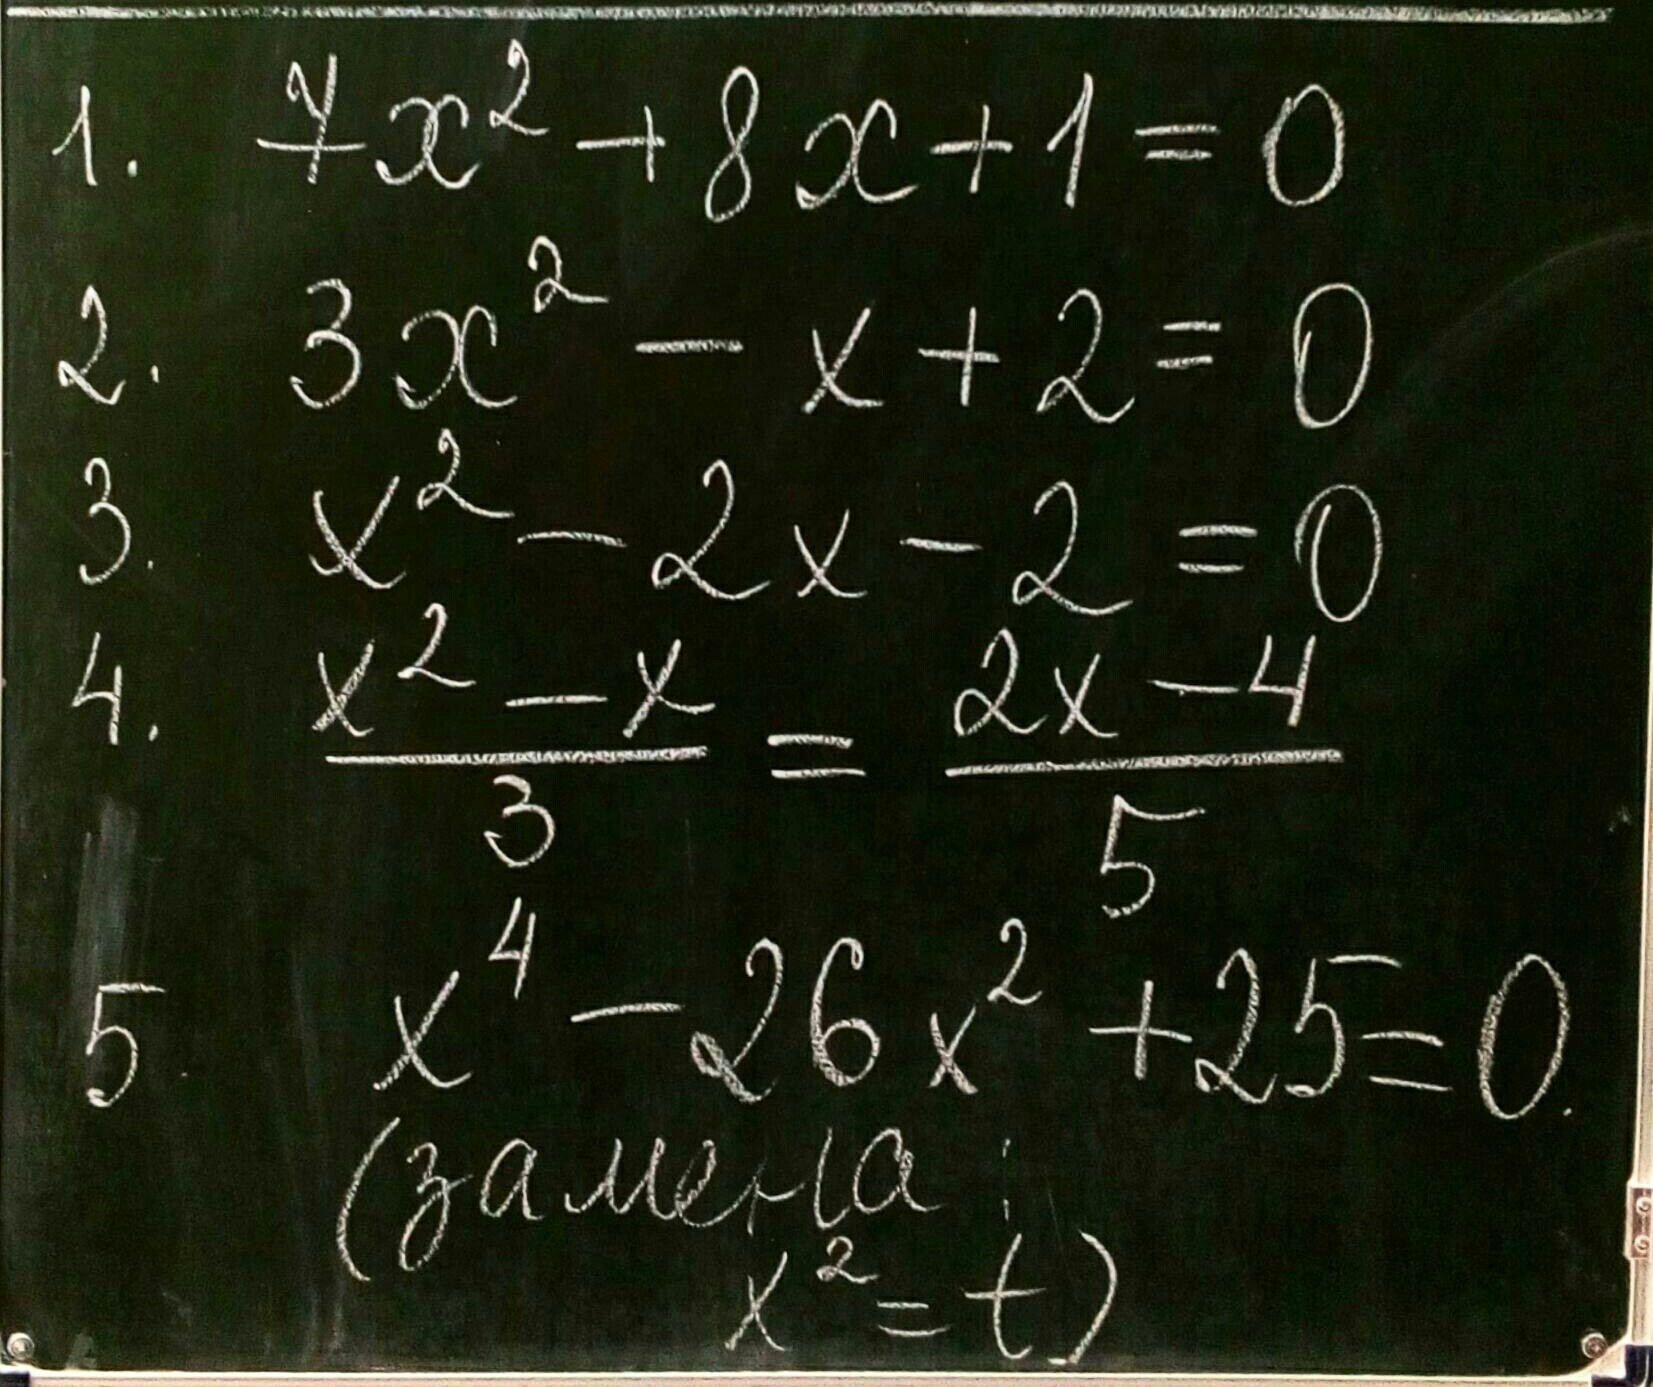 1. 7x² + 8x + 1 = 0
2. 3x² - x + 2 = 0
3. x² - 2x - 2 = 0
4. (x² - x)/3 = (2x - 4)/5
5. x⁴ - 26x² + 25 = 0.
(замена:
x² = t)